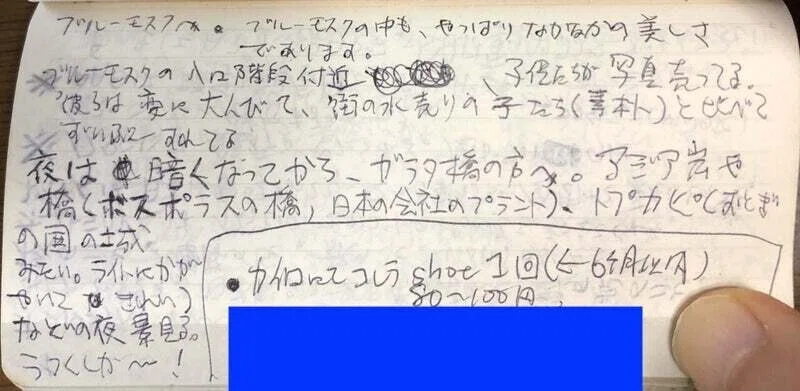 ブルーモスクへ。ブルーモスクの中も、やっぱりなかなかの美しさ
であります。
ブルーモスクの入口階段付近、子供たちが写真売ってる。
彼らは変に大人びて、街の水売りの子たち(素朴)と比べて
ずいぶんすれてる
夜は暗くなってから、ガラタ橋の方へ。アジア岸や
橋(ボスポラスの橋,日本の会社のプラント)、トプカピ(おとぎ
の国の城
みたい。ライトにかがや
いてきれい)
などの夜景見る。
うつくしか〜!
● カイロにてコレラ shot 1回(←6ヶ月以内)
80〜100円、